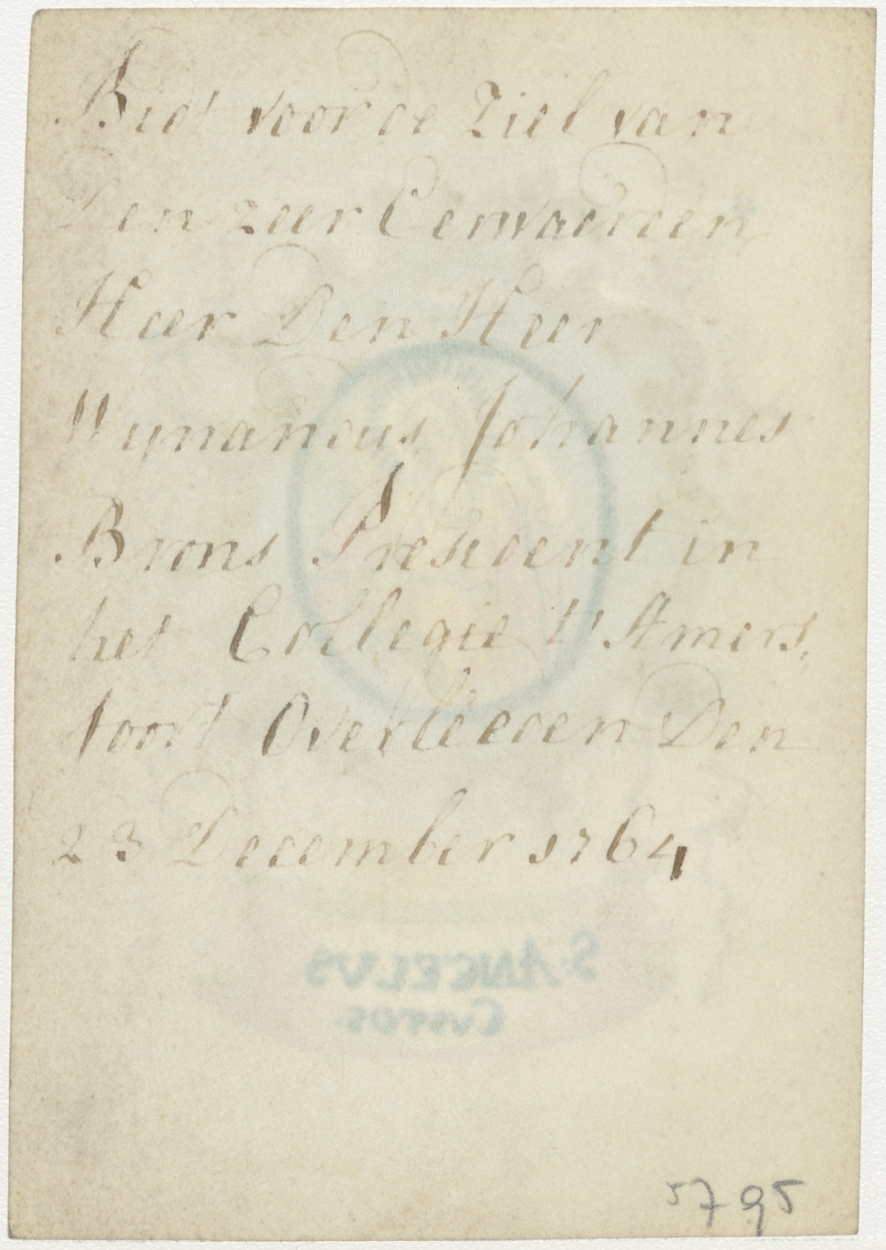 Bidt voor de Ziel van
Den zeer Eerwaerden
Heer Den Heer
Wynandus Johannes
Brons Præsident in
het Collegie t' Amers,
foort Overleeden Den
23 December 1764
S. ANGELVS
CVSTOS.
5795